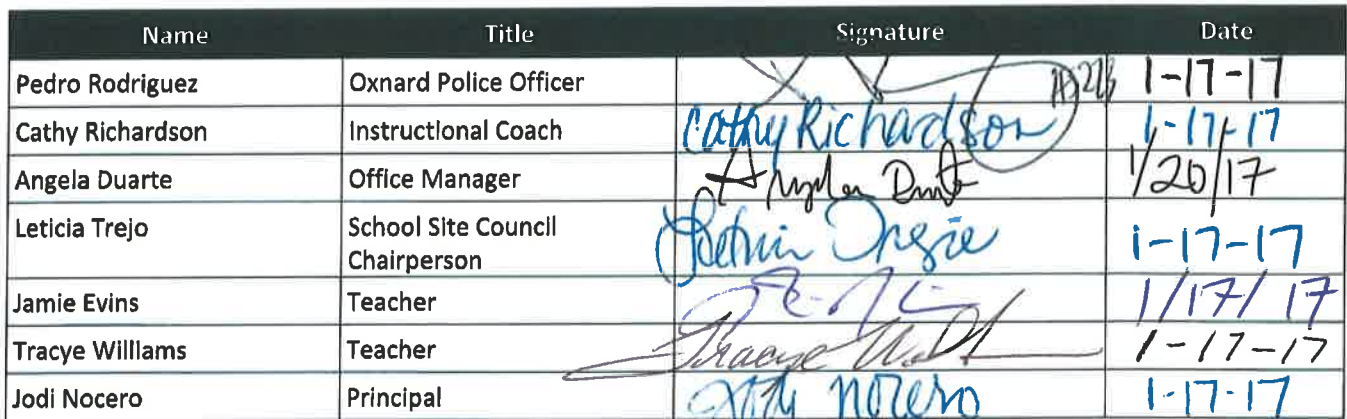 Name Title Signature Date
Pedro Rodriguez Oxnard Police Officer 1-17-17
Cathy Richardson Instructional Coach Cathy Richardson 1-17-17
Angela Duarte Office Manager Angela Duarte 1/20/17
Leticia Trejo School Site Council
Chairperson 1-17-17
Jamie Evins Teacher 1/17/17
Tracye Williams Teacher Tracye 1-17-17
Jodi Nocero Principal Jodi Nocero 1-17-17